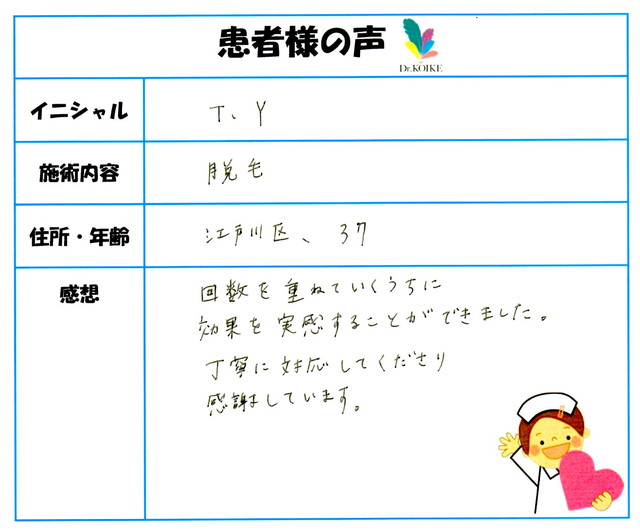 患者様の声
Dr.KOIKE
イニシャル
T、Y
施術内容
脱毛
住所・年齢
江戸川区、37
感想
回数を重ねていくうちに
効果を実感することができました。
丁寧に対応してくださり
感謝しています。